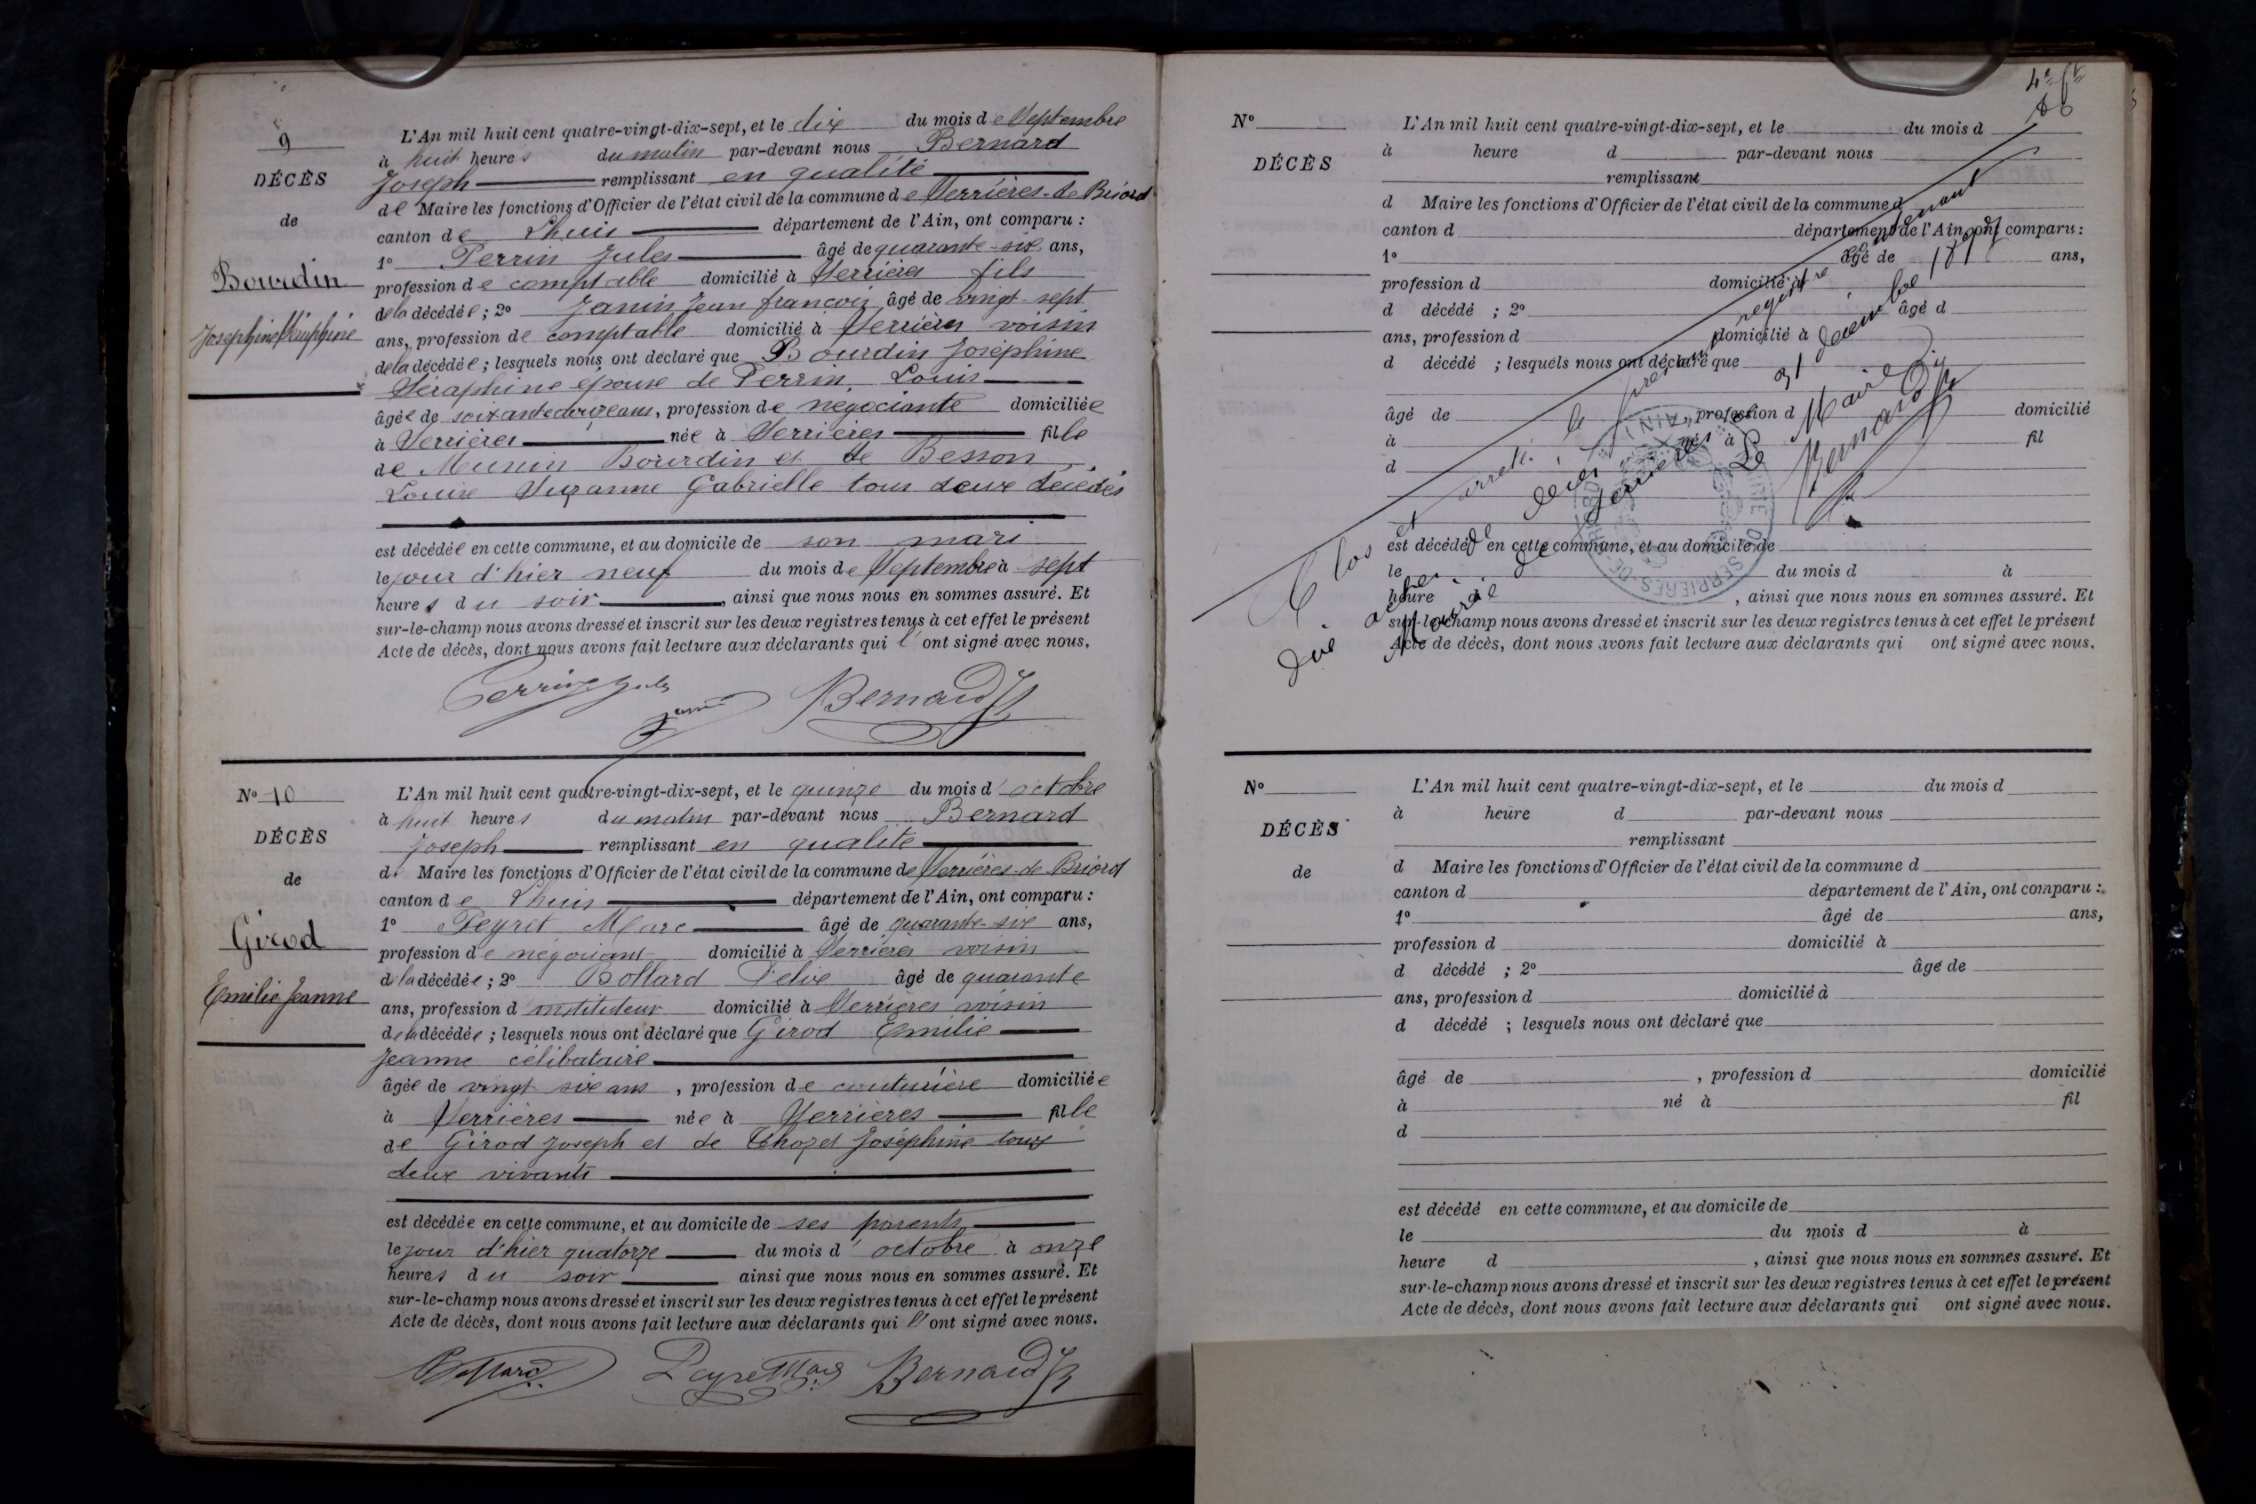 9
DÉCÈS
de
Bourdin
Joséphine Séraphine
L'An mil huit cent quatre-vingt-dix-sept, et le dix du mois de Septembre
à huit heures du matin par-devant nous Bernard
Joseph remplissant en qualité
de Maire les fonctions d'Officier de l'état civil de la commune de Serrières-de-Briord
canton de Lhuis département de l'Ain, ont comparu :
1º Perrin Jules âgé de quarante-six ans,
profession de comptable domicilié à Serrières fils
de la décédée ; 2º Janin Jean françois âgé de vingt-sept
ans, profession de comptable domicilié à Serrières voisin
de la décédée ; lesquels nous ont déclaré que Bourdin Joséphine
Séraphine épouse de Perrin, Louis
âgée de ans, profession de négociante domiciliée
à Serrières née à Serrières fille
de Bourdin et de Besson
Louise Suzanne Gabrielle tous deux décédés
est décédée en cette commune, et au domicile de son mari
le jour d'hier neuf du mois de Septembre à sept
heures du soir, ainsi que nous nous en sommes assuré. Et
sur-le-champ nous avons dressé et inscrit sur les deux registres tenus à cet effet le présent
Acte de décès, dont nous avons fait lecture aux déclarants qui l'ont signé avec nous.
Perrin Jules Janin Bernard J
Nº 10
DÉCÈS
de
Girod
Emilie Jeanne
L'An mil huit cent quatre-vingt-dix-sept, et le quinze du mois d'octobre
à huit heures du matin par-devant nous Bernard
Joseph remplissant en qualité
de Maire les fonctions d'Officier de l'état civil de la commune de Serrières-de-Briord
canton de Lhuis département de l'Ain, ont comparu :
1º Peyret Marc âgé de quarante-six ans,
profession de négociant domicilié à Serrières voisin
de la décédée ; 2º Bollard Félix âgé de quarante
ans, profession d'instituteur domicilié à Serrières voisin
de la décédée ; lesquels nous ont déclaré que Girod Emilie
Jeanne célibataire
âgée de vingt six ans, profession de couturière domiciliée
à Serrières née à Serrières fille
de Girod Joseph et de Thozet Joséphine tous
deux vivants
est décédée en cette commune, et au domicile de ses parents
le jour d'hier quatorze du mois d'octobre à onze
heures du soir ainsi que nous nous en sommes assuré. Et
sur-le-champ nous avons dressé et inscrit sur les deux registres tenus à cet effet le présent
Acte de décès, dont nous avons fait lecture aux déclarants qui l'ont signé avec nous.
Bollard Peyret Marc Bernard J
Nº
DÉCÈS
L'An mil huit cent quatre-vingt-dix-sept, et le du mois d
à heure d par-devant nous
remplissant
d Maire les fonctions d'Officier de l'état civil de la commune d
canton d département de l'Ain, ont comparu :
1º âgé de ans,
profession d domicilié à
d décédé ; 2º âgé d
ans, profession d domicilié à
d décédé ; lesquels nous ont déclaré que
âgé de , profession d domicilié
à né à fil
d
est décédé en cette commune, et au domicile de
le du mois d à
heure d , ainsi que nous nous en sommes assuré. Et
sur-le-champ nous avons dressé et inscrit sur les deux registres tenus à cet effet le présent
Acte de décès, dont nous avons fait lecture aux déclarants qui ont signé avec nous.
Clos et arrêté le présent registre contenant
dix actes de décès
Mairie de Serrières le 31 décembre 1897
Le Maire
Bernard J
Nº
DÉCÈS
de
L'An mil huit cent quatre-vingt-dix-sept, et le du mois d
à heure d par-devant nous
remplissant
d Maire les fonctions d'Officier de l'état civil de la commune d
canton d département de l'Ain, ont comparu :
1º âgé de ans,
profession d domicilié à
d décédé ; 2º âgé de
ans, profession d domicilié à
d décédé ; lesquels nous ont déclaré que
âgé de , profession d domicilié
à né à fil
d
est décédé en cette commune, et au domicile de
le du mois d à
heure d , ainsi que nous nous en sommes assuré. Et
sur-le-champ nous avons dressé et inscrit sur les deux registres tenus à cet effet le présent
Acte de décès, dont nous avons fait lecture aux déclarants qui ont signé avec nous.